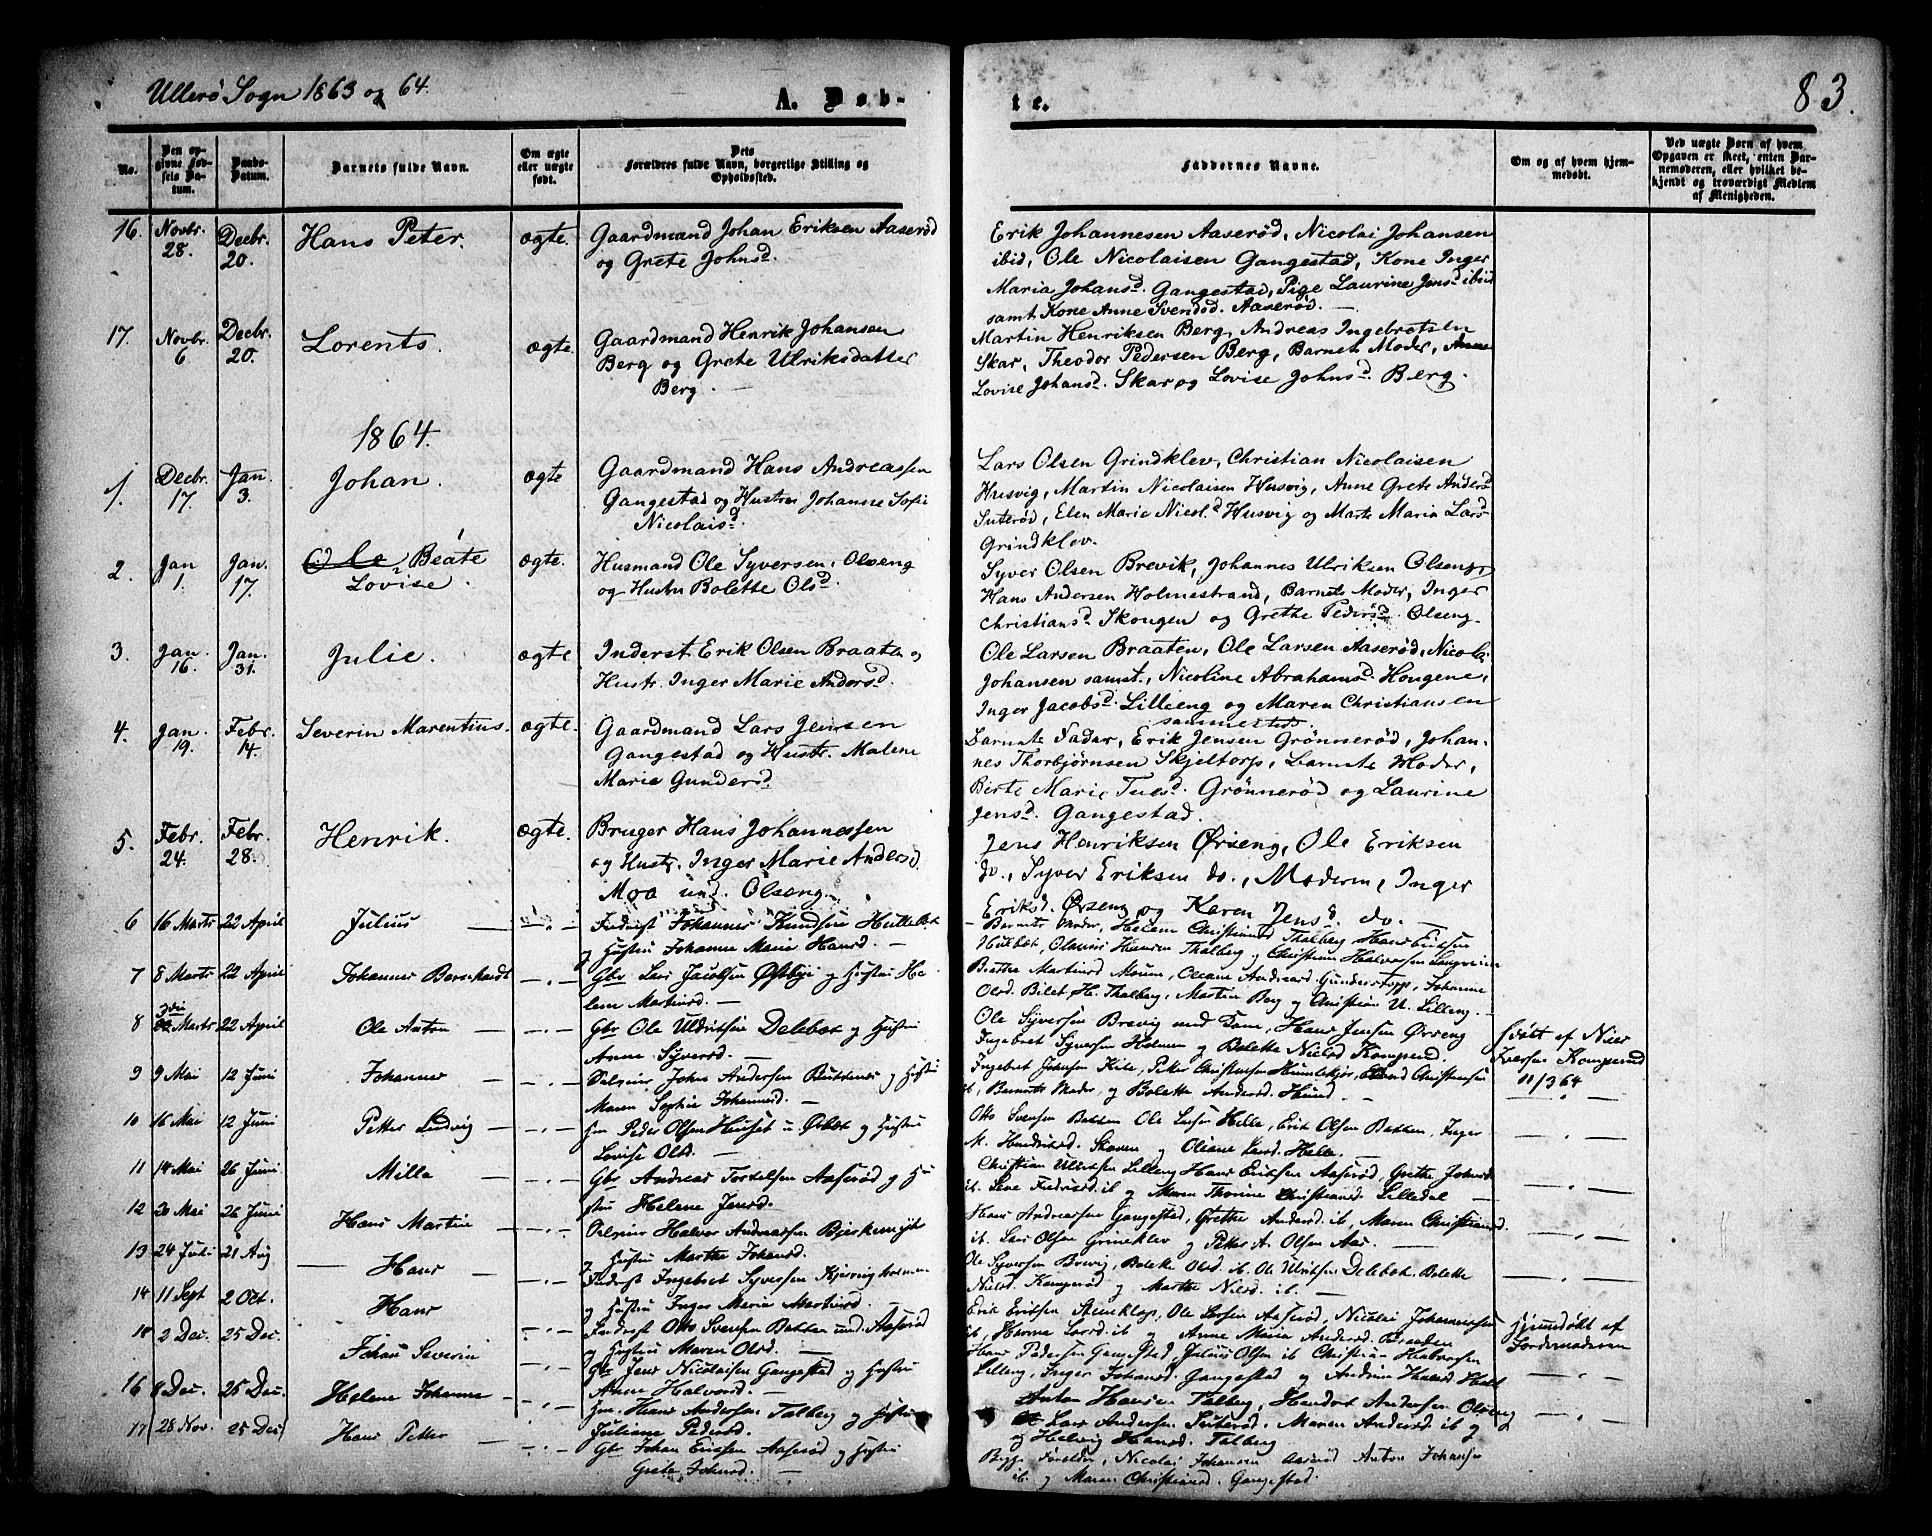 Ullerö Sogn 1863 og 64.
A. Døb-
te.
83.
No.
Den opgivne Fødsels Datum.
Daabs-Datum.
Barnets fulde Navn.
Om ægte eller uægte født.
Dets Forældres fulde Navn, borgerlige Stilling og Opholdssted.
Faddernes Navne.
Om og af hvem hjemmedøbt.
Ved uægte Børn af hvem Opgaven er skeet, enten Barnemoderen, eller hvilket bekjendt og troværdigt Medlem af Menigheden.
16. Novbr. 28. Decbr. 20. Hans Peter. ægte. Gaardmand Johan Eriksen Aaserød
og Grete Johnsd.
Erik Johannesen Aaserød, Nicolai Johansen
ibid, Ole Nicolaisen Gangestad, Kone Inger
Maria Johansd. Gangestad, Pige Laurine Jensd ibid
samt Kone Anne Svendsd. Aaserød.
17. Novbr. 6 Decbr. 20. Lorents. ægte. Gaardmand Henrik Johansen
Berg og Grete Ulriksdatter
Berg.
Martin Henriksen Berg, Andreas Ingebretsen
Skar, Theodor Pedersen Berg, Barnets Moder, Anne
Lovise Johansd. Skar og Lovise Johnsd. Berg.
1864.
1. Decbr. 17. Jan. 3. Johan. ægte Gaardmand Hans Andreassen
Gangestad og Hustru Johanne Sofie
Nicolaisd.
Lars Olsen Grindklev, Christian Nicolaisen
Husvig, Martin Nicolaisen Husvig, Anne Grete Andersd
Suterød, Elen Marie Nicol.d Husvig og Marte Maria Larsd
Grindklev.
2. Jan 1. Jan. 17. Beate
Lovise. ægte. Husmand Ole Syversen, Olseng
og Hustru Bolette Olsd.
Syver Olsen Brevik, Johannes Ulriksen Olseng,
Hans Andersen Holmestrand, Barnets Moder, Inger
Christiansd. Skougen og Grethe Pedersd. Olseng.
3. Jan. 16. Jan. 31. Julie. ægte Inderst Erik Olsen Braaten og
Hustr. Inger Marie Andersd.
Ole Larsen Braaten, Ole Larsen Aaserød, Nicolai
Johansen samt., Nicoline Abrahamsd. Hougene,
Inger Jacobsd. Lilleeng og Maren Christiansen
sammesteds.
4. Jan. 19. Febr. 14. Severin Marentius. ægte. Gaardmand Lars Jensen
Gangestad og Hustr. Malene
Marie Gundersd
Barnets Fader, Erik Jensen Grönnerød, Johan-
nes Thorbjørnsen Skjeltorp, Barnets Moder,
Berte Marie Tuesd. Grönnerød og Laurine
Jensd. Gangestad.
5. Febr. 24. Febr. 28. Henrik. ægte. Bruger Hans Johannessen
og Hustr. Inger Marie Andersd
Moa und. Olseng.
Jens Henriksen Ørseng, Ole Eriksen
do., Syver Eriksen do., Moderen, Inger
Eriksd. Ørseng og Karen Jensd. do.
6 16 Marts 22 April Julius Johannes Knudsen
og Hustru Johanne Marie Hansd.
Barnets Moder, Helene Christiansd Thalberg Hans Eriksen
Thalberg og Christian Halvorsen
7 8 Marts 22 April Johannes Bernhardt Gbr Lars Jacobsen Østbye og Hustru He-
lene Martinsd.
Berthe Martinsd. Moum, Oleane Andreasd Gunderstorp, Johanne
Olsd. H. Thalberg, Martin Berg og Christian U. Lilleng.
8 Marts 22 April Ole Anton Gbr Ole Uldriksen Delebet og Hustru
Anne Syversd.
Ole Syversen Brevig med Kone, Hans Jensen Ørseng
Ingebret Syversen Holmen og Bolette Nielsd Kampend. 
døbt af Niels
Iversen
11/3 64
9 9 Mai 12 Juni Johannes John Andersen og Hustru
Maren Sophie Johannesd.
Ingebret Jensen Kile, Peter Christensen
Barnets Moder, og Bolette Andersd. Hund.
10 16 Mai 12 Juni Petter Ludvig Hm Peder Olsen Huset og Hustru
Lovise Olsd.
Otto Svensen Bakken Ole Larsen Helle, Erik Olsen Bakken, Inger
M. Hendriksd. Skoven og Oleane Larsd. Helle.
11 14 Mai 26 Juni Milla Gbr Andreas Torkelsen Aaserød og Hu-
stru Helene Jensd.
Christian Ulriksen Lilleng Hans Eriksen Aaserød, Grethe Johnsd.
ib. Lene Fredriksd. ib og Maren Thorine Christiansd. Lilledal
12 20 Mai 26 Juni Hans Martin Halvor Andreassen
og Hustru Marthe Johansd.
Hans Andreassen Gangestad, Grethe Andersd. ib, Maren Christiansd.
ib. Lars Olsen Grineklev og Peter A. Olsen Aas.
13 24 Juli 21 Aug Hans Ingebret Syversen
og Hustru Inger Maria Martinsd.
Ole Syversen Brevig, Bolette Olsd. ib. Ole Ulriksen Delebet. Bolette
Nielsd. og Marthe Nielsd. ib.
14 11 Sept 2 Oct. Hans Otto Svensen Bakken und. Aaserød
og Hustru Maren Olsd.
Erik Eriksen Steneklop, Ole Larsen Aaserød, Nicolai Johannessen
ib, Hanna Larsd. ib og Anne Maria Andersd. Braaden
hjemdøbt af
Jordemoderen
15 2 Dec. 25 Dec. Johan Severin Gbr Jens Nicolaisen Gangestad og Hustru
Anne Halvorsd.
Hans Pedersen Gangestad, Julius Olsen ib Christian Halvorsen
Lilleng, Inger Johansd. Gangestad og
16 8 Dec. 25 Dec. Helene Johanne Hm. Hans Andersen Talberg og Hustru
Juliane Pedersd.
Anton Hansen Talberg, Hendrik Andersen Olseng
Lars Andersen Suterød. Maren Andersd ib og
og Helvig Hansd. Talberg
17 28 Nov. 25 Dec. Hans Petter Gbr Johan Ericksen Aaserød og Hustru
Grete Johnsd.
Begge Foreldre, Nicolai Johansen Aaserød Anton Johansen
ib og Maren Christiansd. Gangestad.